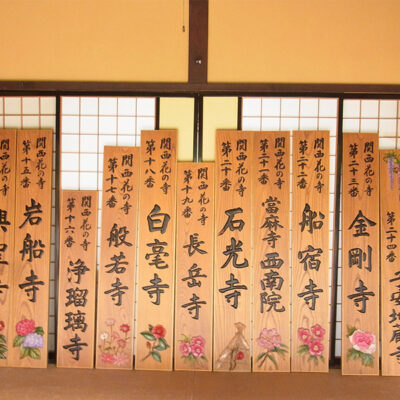 関西花の寺
第十五番
岩船寺
関西花の寺
第十六番
浄瑠璃寺
関西花の寺
第十七番
般若寺
関西花の寺
第十八番
白毫寺
関西花の寺
第十九番
長岳寺
関西花の寺
第二十番
石光寺
関西花の寺
第二十一番
當麻寺西南院
関西花の寺
第二十二番
船宿寺
関西花の寺
第二十三番
金剛寺
第二十四番
子安地蔵寺